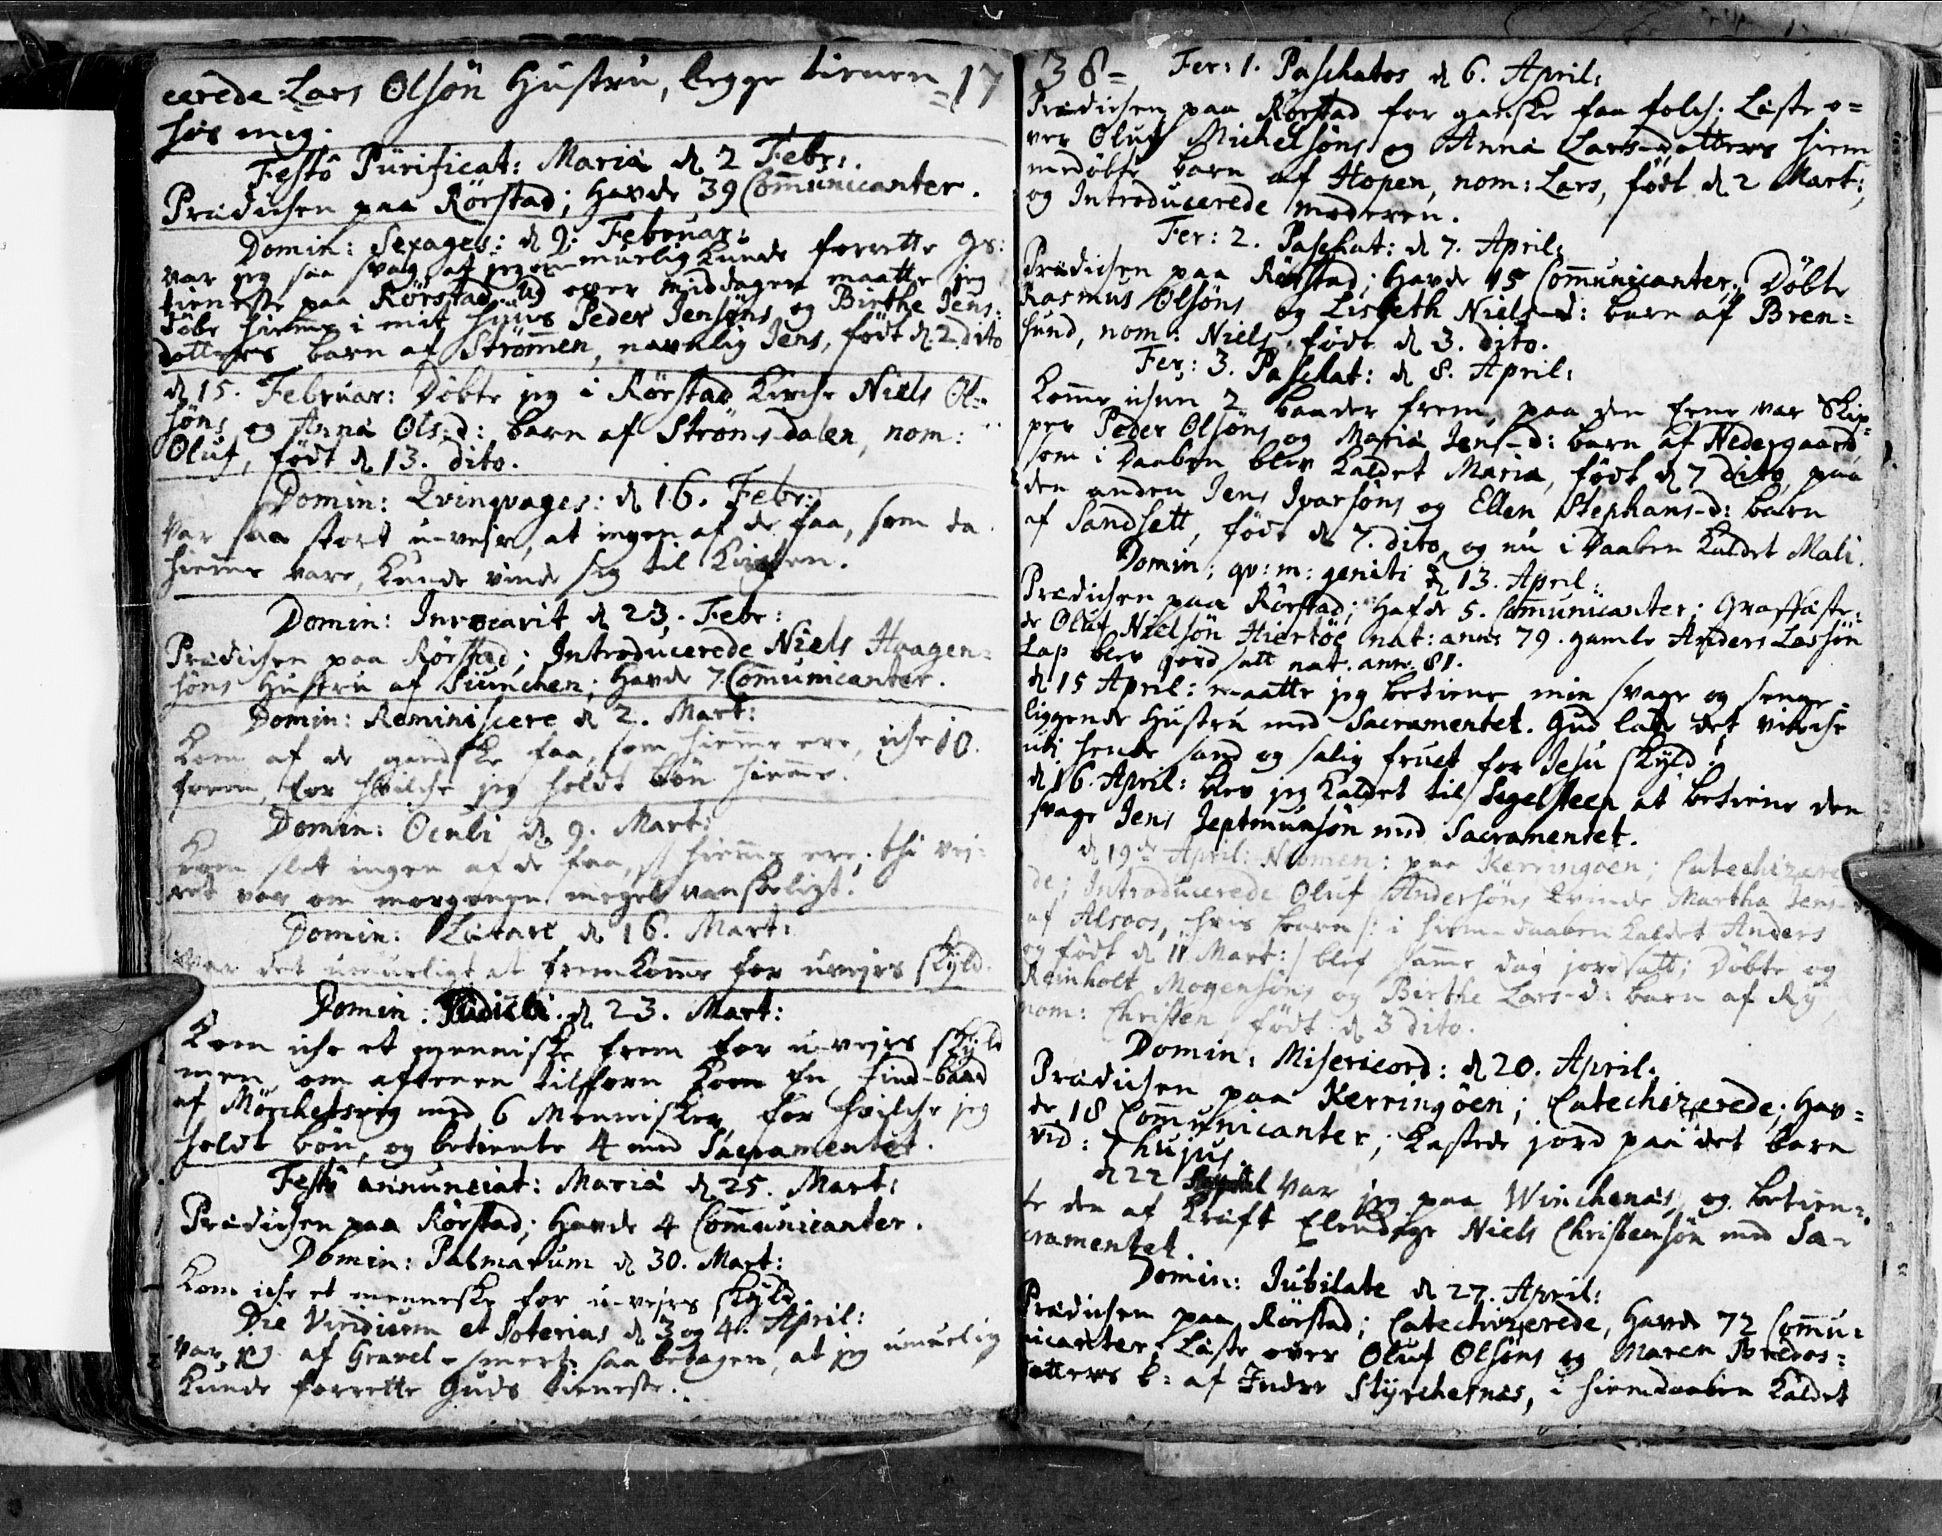 cerede Lars Olsön Hustru, begge tienen = 17
hos mig.
Festô Pürificat: Mariæ d 2 Febr:
Prædichen paa Rörstad; Havde 39 Com̄unicanter.
Domin: Sexages: d 9. Februar:
var jeg saa svag at jeg umuelig kunde forrette gs:
tieneste paa Rörstad; over middagen maatte jeg
döbe hiem̄e i mit Huus Peder Jensöns og Birthe Jens:
dotters barn af Ström̄en, navnlig Jens, födt d. 2. dito
d 15. Februar: Döbte jeg i Rörstad Kirche Niels Ol=
söns og Anna Ols:d: barn af Strömsdalen, nom:
Oluf, födt d 13. dito.
Domin: Qvinqvages: d 16. Febr:
var saa stort u-vejr, at ingen af de faa, som da
hiem̄e vare, kunde vinde sig til Kirchen.
Domin: Invocavit d 23. Febr:
Prædichen paa Rörstad; Introducerede Niels Haagen=
söns Hustru af ; Havde 7 Com̄unicanter.
Domin: Reminiscere d 2. Mart:
Kom af de gandske faa, som hiem̄e ere, iche 10.
frem, for hvilche jeg holdt bön hiem̄e.
Domin: Oculi d 9. Mart:
Kom slet ingen af de faa, hiem̄e ere; thi vej=
ret var om morgenen meget vanskeligt.
Domin: Lætare d 16. Mart:
Var det umueligt at fremkom̄e for uvejrs skyld.
Domin: Judica d 23. Mart:
Kom iche et menniske frem for u-vejrs skyld
men om aftenen tilforn kom en find-baad
af Mörchesvig med 6 Mennisker, for hvilche jeg
holdt bön, og betiente 4 med Sacramentet.
Festô annunciat: Mariæ d 25. Mart:
Prædichen paa Rörstad; Havde 4 Com̄unicanter.
Domin: Palmarum d 30. Mart:
Kom iche et menneske for u-vejrs skyld.
Die Viridium et Soterias d 3 og 4. April:
Var jeg af Gravel-smerte saa betagen, at jeg umuelig
kunde forrette Guds tieneste.
38= Fer: 1. Paschatos d 6. April:
Prædichen paa Rörstad for ganske faa folch; Læste o=
ver Oluf Michelsöns og Anna Lars-dotters hiem
medöbte barn af Hopen, nom: Lars, födt d 2 Mart;
og Introducerede moderen.
Fer: 2. Paschat: d 7. April:
Prædichen paa Rörstad; Havde 15 Com̄unicanter; Döbte
Rasmus Olsöns og Lisbeth Niels-d: barn af Bren=
sund, nom: Niels, födt d 3. dito.
Fer: 3. Paschat: d 8. April:
Kom̄e ichun 2 baader frem, paa den eene var Skip=
per Peder Olsöns og Maria Jens-d: barn af Nedergaard
som i daaben blev kaldet Maria, födt d 7 dito, paa
den anden Jens Ivarsöns og Ellen Stephans-d: barn
af Sandsett, födt d 7. dito, og nu i daaben kaldet Mali.
Domin: qv: m: geniti d 13. April:
Prædichen paa Rörstad; Hafde 5. Com̄unicanter; Graffæste=
de Oluf Nielsön Hiertöe nat: annos 79. gamle Anders Larsön
Lap blev jord satt nat. ann. 81.
d 15 April: maatte jeg betiene min svage og senge=
liggende Hustru med Sacramentet. Gud lade det virche
udi hende sand og salig fruct for Jesu skyld!
d 16. April: blev jeg kaldet til Segelsteen at betiene den
svage Jens Jeptmunsön med Sacramentet.
d 19de April: paa Kerringöen; Catechizere
de; Introducerede Oluf Andersöns kvinde Martha Jens-d:
af Alsoos, hvis barn /: i hiem-daaben kaldet Anders
og födt d 11 Mart: / blef sam̄e dag jordsatt; Döbte og
Reinholt Mogensöns og Berthe Lars-d: barn af Ry
nom: Christen, födt d 3 dito.
Domin: Misericord: d 20. April:
Prædichen paa Kerringöen; Catechizerede; Hav=
de 18 Com̄unicanter; kastede jord paa det barn
vid: 7 hujus
d 22 April Var jeg paa Winchenæs, og betien=
te den af Kræft Elendige Niels Christensön med Sa=
cramentet.
Domin: Jubilate d 27. April:
Prædichen paa Rörstad; Catechizerede, Havde 72 Com̄u=
nicanter. Læste over Oluf Olsöns og Maren Pedros=
dotters b: af Indre Styrchesnæs, i hiemdaaben kaldet